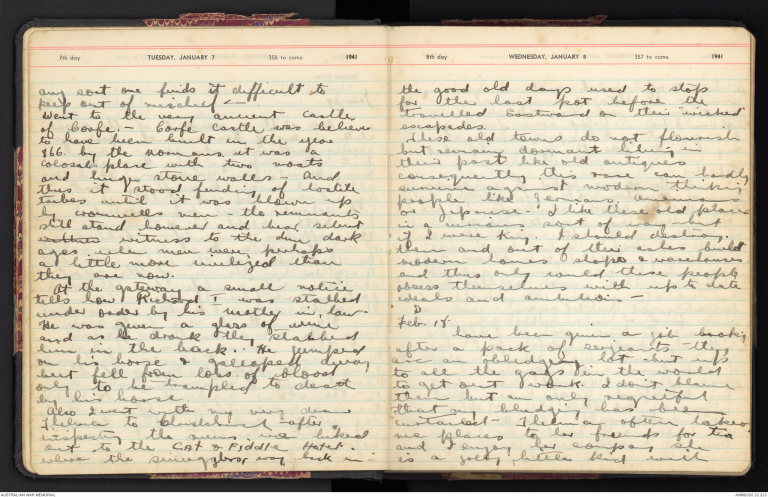 7th day TUESDAY, JANUARY 7 358 to come 1941
any sort one finds it difficult to
keep out of mischief —
Went to the very ancient castle
of Corfe. — Corfe castle was believe
to have been built in the year
866. by the normans it was a
colosal place with two moats
and huge stone walls — And
thus it stood fending of hostile
tribes until it was blown up
by cromwells men — the remnants
still stand however and bear silent
witness to the dim dark
ages when men were perhaps
a little more civilized than
they are now.
At the gateway a small notice
tells how Richard I was stabbed
under order by his mother in law.
He was given a glass of wine
and as he drank they stabbed
him in the back. He jumped
on his horse & galloped away
but fell from loss of blood
only to be trampled to death
by his horse
Also I went with my very dear
Thelma to Christchurch — after
inspecting the ruins we hiked
out to the CAT & FIDDLE HOTEL.
where the smugglers way back in
8th day WEDNESDAY, JANUARY 8 357 to come 1941
the good old days used to stop
for the last pot before the
travelled Eastward on their "wicked"
escapades.
These old towns do not flourish
but remain dormant living in
their past like old antiques
consequently this race can hardly
survive against modern thinking
people like Germans Americans
or Japenese. I like these old places
in a curious sort of way but
if I were King I should destroy
them and out of their ashes build
modern homes shops & warehouses
and thus only would these people
obsess themselves with up to date
ideals and ambitions —
D
Feb. 18.
have been given a job
after a pack of sergeants — they
are an obliging lot but up
to all the gags in the world
to get out of work. I don't blame
them but am only regretful
that my bludging has been
curtailed — Thelma often takes
me places to her friends for tea
and I enjoy her company she
is a jolly little kid with
AUSTRALIAN WAR MEMORIAL